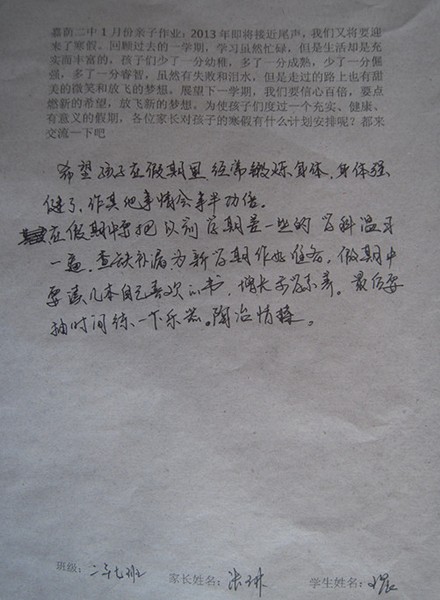 嘉荫二中1月份亲子作业：2013年即将接近尾声，我们又将要迎
来了寒假。回顾过去的一学期，学习虽然忙碌，但是生活却是充
实而丰富的，孩子们少了一分幼稚，多了一分成熟，少了一分倔
强，多了一分睿智，虽然有失败和泪水，但是走过的路上也有甜
美的微笑和放飞的梦想。展望下一学期，我们要信心百倍，要点
燃新的希望，放飞新的梦想，为使孩子们度过一个充实、健康、
有意义的假期，各位家长对孩子的寒假有什么计划安排呢？都来
交流一下吧
希望孩子在假期里经常锻炼身体，身体强
健了，作其他事情会事半功倍。
在假期中要把以前学期差一些的学科温习
一遍，查缺补漏为新学期作好准备，假期中
要读几本自己喜欢的书，增长文学素养。最后要
抽时间练一下乐器。陶冶情操。
班级：二年七班 家长姓名：张琳 学生姓名：